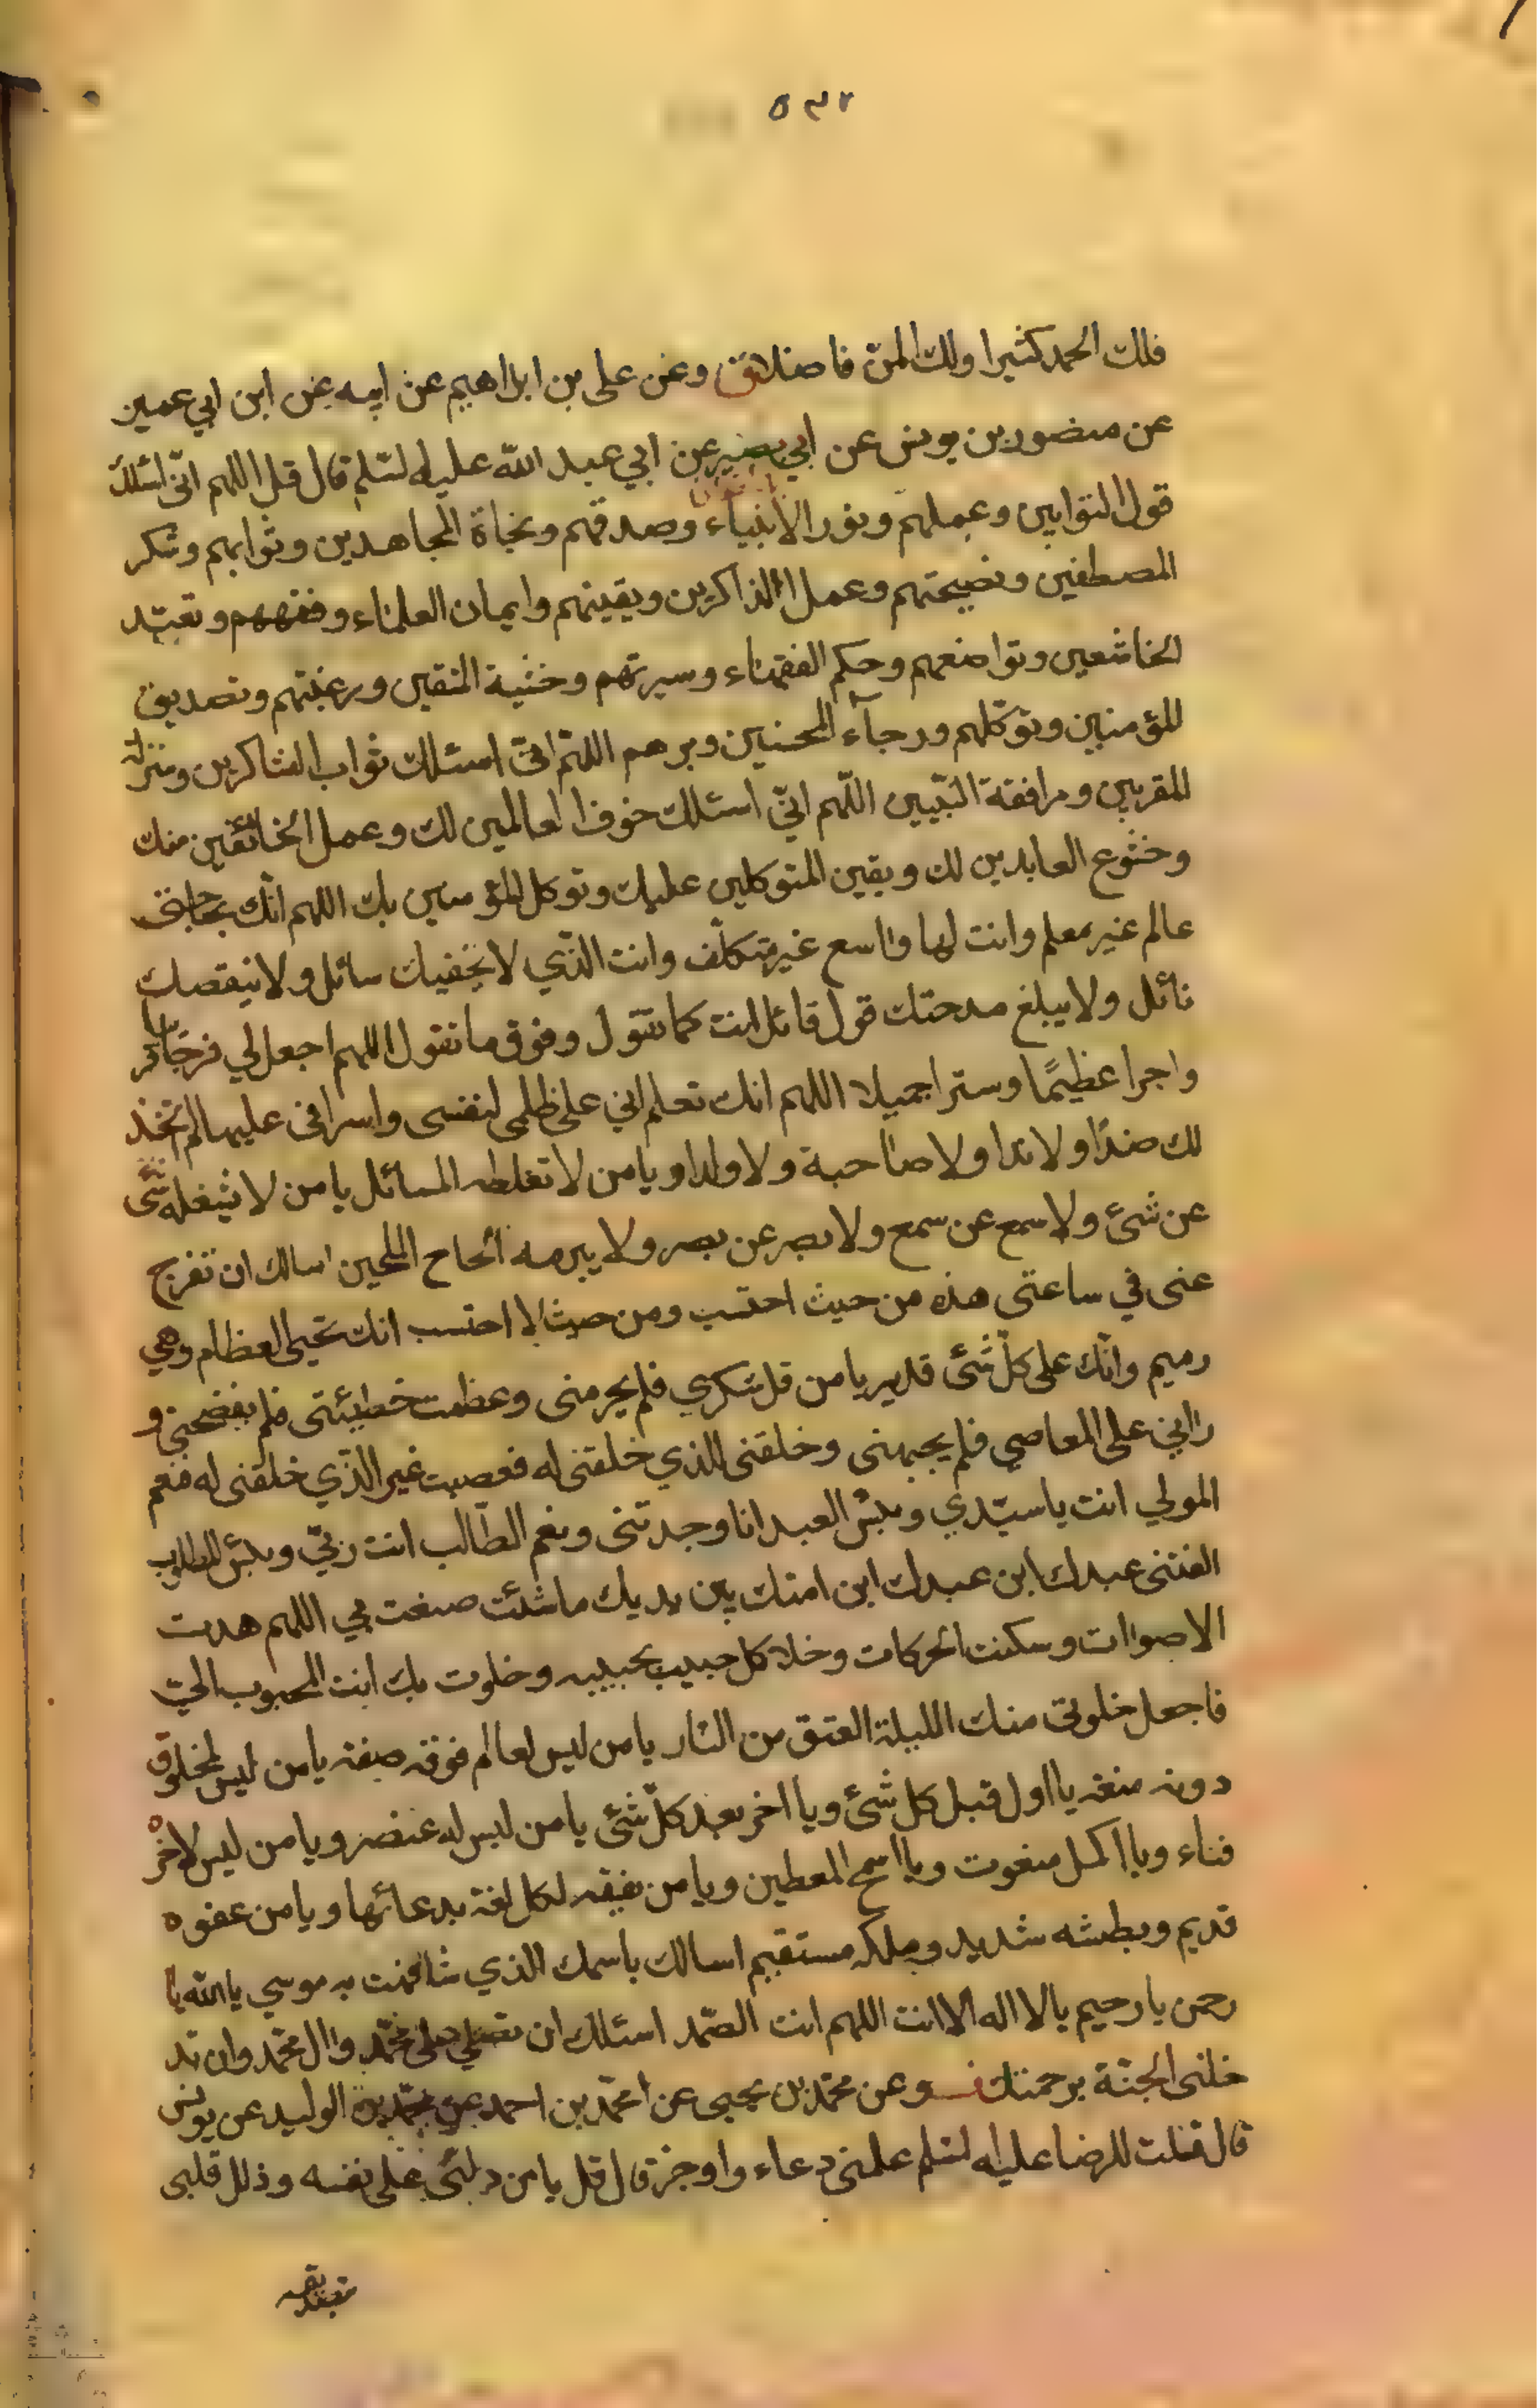 ٥٣٢
فلك الحمد كثيرا ولك المن فاضلا وعن علي بن ابراهيم عن ابيه عن ابن ابي عمير
عن منصور بن يونس عن ابي بصير عن ابي عبد الله عليه السلم قال قل اللهم اني اسئلك
قول التوابين وعملهم ونور الأنبياء وصدقهم ونجاة المجاهدين وثوابهم وشكر
المصطفين ونصيحتهم وعمل الذاكرين ويقينهم وايمان العلماء وفقههم وتعبد
الخاشعين وتواضعهم وحكم الفقهاء وسيرتهم وخشية المتقين ورغبتهم وتصديق
المؤمنين وتوكلهم ورجاء المحسنين وبرهم اللهم اني اسئلك ثواب الشاكرين ومنزلة
المقربين ومرافقة النبيين اللهم اني اسئلك خوف العالمين لك وعمل الخائفين منك
وخشوع العابدين لك ويقين المتوكلين عليك وتوكل المؤمنين بك اللهم انك بحاجتي
عالم غير معلم وانت لها واسع غير متكلف وانت الذي لا يحفيك سائل ولا ينقصك
نائل ولا يبلغ مدحتك قول قائل انت كما تقول وفوق ما نقول اللهم اجعل لي فرجا قريبا
واجرا عظيمًا وسترا جميلا اللهم انك تعلم اني على ظلمي لنفسي واسرافي عليها لم اتخذ
لك ضدًا ولا ندا ولا صاحبة ولا ولدا ويا من لا تغلطه المسائل يا من لا يشغله شئ
عن شئ ولا سمع عن سمع ولا بصر عن بصر ولا يبرمه الحاح الملحين اسالك ان تفرج
عني في ساعتي هذه من حيث احتسب ومن حيث لا احتسب انك تحيي العظام وهي
رميم وانك على كل شئ قدير يا من قل شكري فلم يحرمني وعظمت خطيئتي فلم يفضحني و
رآني على المعاصي فلم يجبهني وخلقني للذي خلقني له فصنعت غير الذي خلقني له فنعم
المولي انت يا سيدي وبئس العبد انا وجدتني ونعم الطالب انت ربي وبئس المطلوب
الفتني عبدك ابن عبدك ابن امتك بين يديك ما شئت صنعت بي اللهم هدت
الاصوات وسكنت الحركات وخلا كل حبيب بحبيبه وخلوت بك انت المحبوب الي
فاجعل خلوتي منك الليلة العتق من النار يا من ليس لعالم فوقه صفة يا من ليس لمخلوق
دونه منعة يا اول قبل كل شئ ويا اخر بعد كل شئ يا من ليس له عنصر ويا من ليس لاخره
فناء ويا اكمل منعوت ويا اسمح المعطين ويا من يفقه لكل لغة بدعائها ويا من عفوه
قديم وبطشه شديد وملكه مستقيم اسالك باسمك الذي شافهت به موسي يا الله يا
رحمن يا رحيم يا لا اله الا انت اللهم انت الصمد اسئلك ان تصلي على محمد وال محمد وان تد
خلني الجنة برحمتك وعن محمد بن يحيى عن محمد بن احمد عن محمد بن الوليد عن يونس
قال قلت للرضا عليه السلم علمني دعاء واوجز قال قل يا من دلني على نفسه وذلل قلبي
بتصديقه